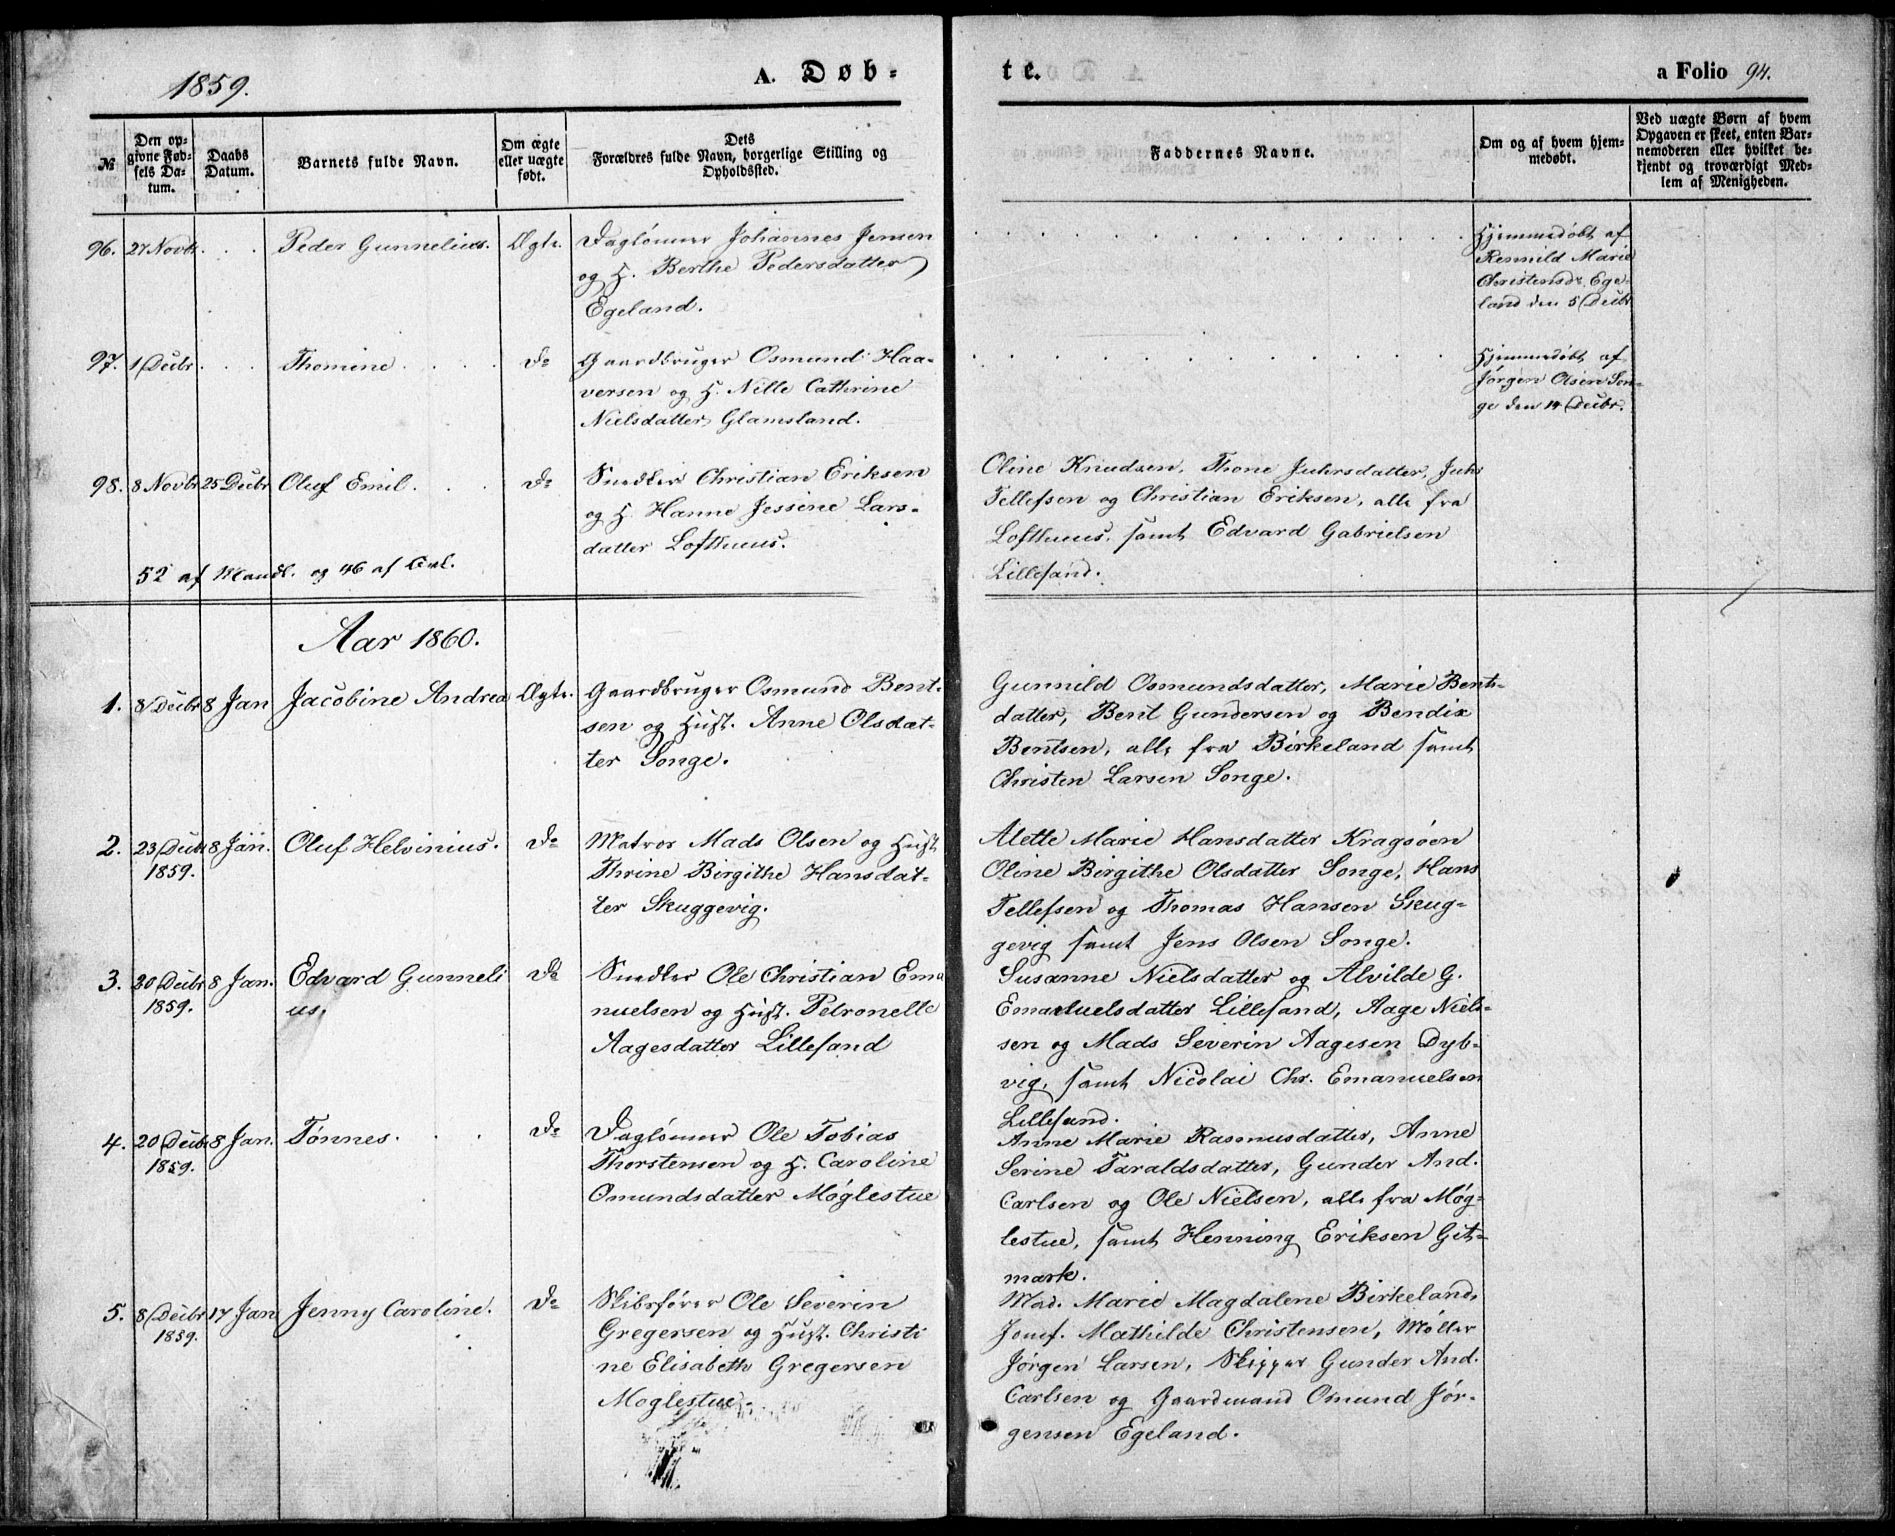 1859.
A. Døb-
te.
a Folio 94.
№
Den op-
givne Fød-
sels Da-
tum.
Daabs
Datum.
Barnets fulde Navn.
Om ægte
eller uægte
født.
Dets
Forældres fulde Navn, borgerlige Stilling og
Opholdssted.
Faddernes Navne.
Om og af hvem hjem-
medøbt.
Ved uægte Børn af hvem
Opgaven er skeet, enten Bar-
nemoderen eller hvilket be-
kjendt og troværdigt Med-
lem af Menigheden.
96. 27 Novbr . . . Peder Gunnelius. Ægte.
Daglønner Johannes Jensen
og H. Berthe Pedersdatter
Egeland.
Hjemmedøbt af
Rennild Marie
Christensdr Ege-
land den 5 Decbr
97. 1 Decbr . . . Thomine . . . . Do
Gaardbruger Osmund Haa-
versen og H. Nille Cathrine
Nielsdatter Glamsland.
Hjemmedøbt af
Jørgen Olsen Son-
ge den 14 Decbr.
98. 8 Novbr 25 Decbr Oluf Emil . . . Do
Snedker Christian Eriksen
og H. Hanne Jessine Lars-
datter Lofthuus.
Oline Knudsen, Thone Juhrsdatter, Juhr
Tellefsen og Christian Eriksen, alle fra
Lofthuus, samt Edvard Gabrielsen
Lillesand.
52 af Mandk. og 46 af Qvk.
Aar 1860.
1. 8 Decbr 8 Jan Jacobine Andrea Ægte.
Gaardbruger Osmund Bent-
sen og Hust. Anne Olsdat-
ter Songe.
Gunnild Osmundsdatter, Marie Bents-
datter, Bent Gundersen og Bendix
Bentsen, alle fra Birkeland samt
Christen Larsen Songe.
2. 23 Decbr 8 Jan. Oluf Helvinius. Do
1859.
Matros Mads Olsen og Hust
Thrine Birgithe Hansdat-
ter Skuggevig.
Alette Marie Hansdatter Kragsøen
Oline Birgithe Olsdatter Songe, Hans
Tellefsen og Thomas Hansen Skug-
gevig samt Jens Olsen Songe.
3. 30 Decbr 8 Jan. Edvard Gunneli Do
1859.
us.
Snedker Ole Christian Ema
nuelsen og Hust. Petronelle
Aagesdatter Lillesand
Susanne Nielsdatter og Alvilde G.
Emanuelsdatter Lillesand, Aage Niels-
sen og Mads Severin Aagesen Dyb-
vig, samt Nicolai Chr. Emanuelsen
Lillesand.
4. 20 Decbr 8 Jan. Tønnes. . . Do
1859.
Daglønner Ole Tobias
Thorstensen og H. Caroline
Omundsdatter Møglestue
Anne Marie Rasmusdatter, Anne
Serine Taraldsdatter, Gunder And.
Carlsen og Ole Nielsen, alle fra Møg-
lestue, samt Henning Eriksen Git-
mark.
5. 8 Decbr 17 Jan Jenny Caroline. Do
1859.
Skibsfører Ole Severin
Gregersen og Hust. Christi
ne Elisabeth Gregersen
Moglestue.
Mad. Marie Magdalene Birkeland,
Jomf. Mathilde Christensen, Møller
Jørgen Larsen, Skipper Gunder And.
Carlsen og Gaardmand Omund Jør-
gensen Egeland.